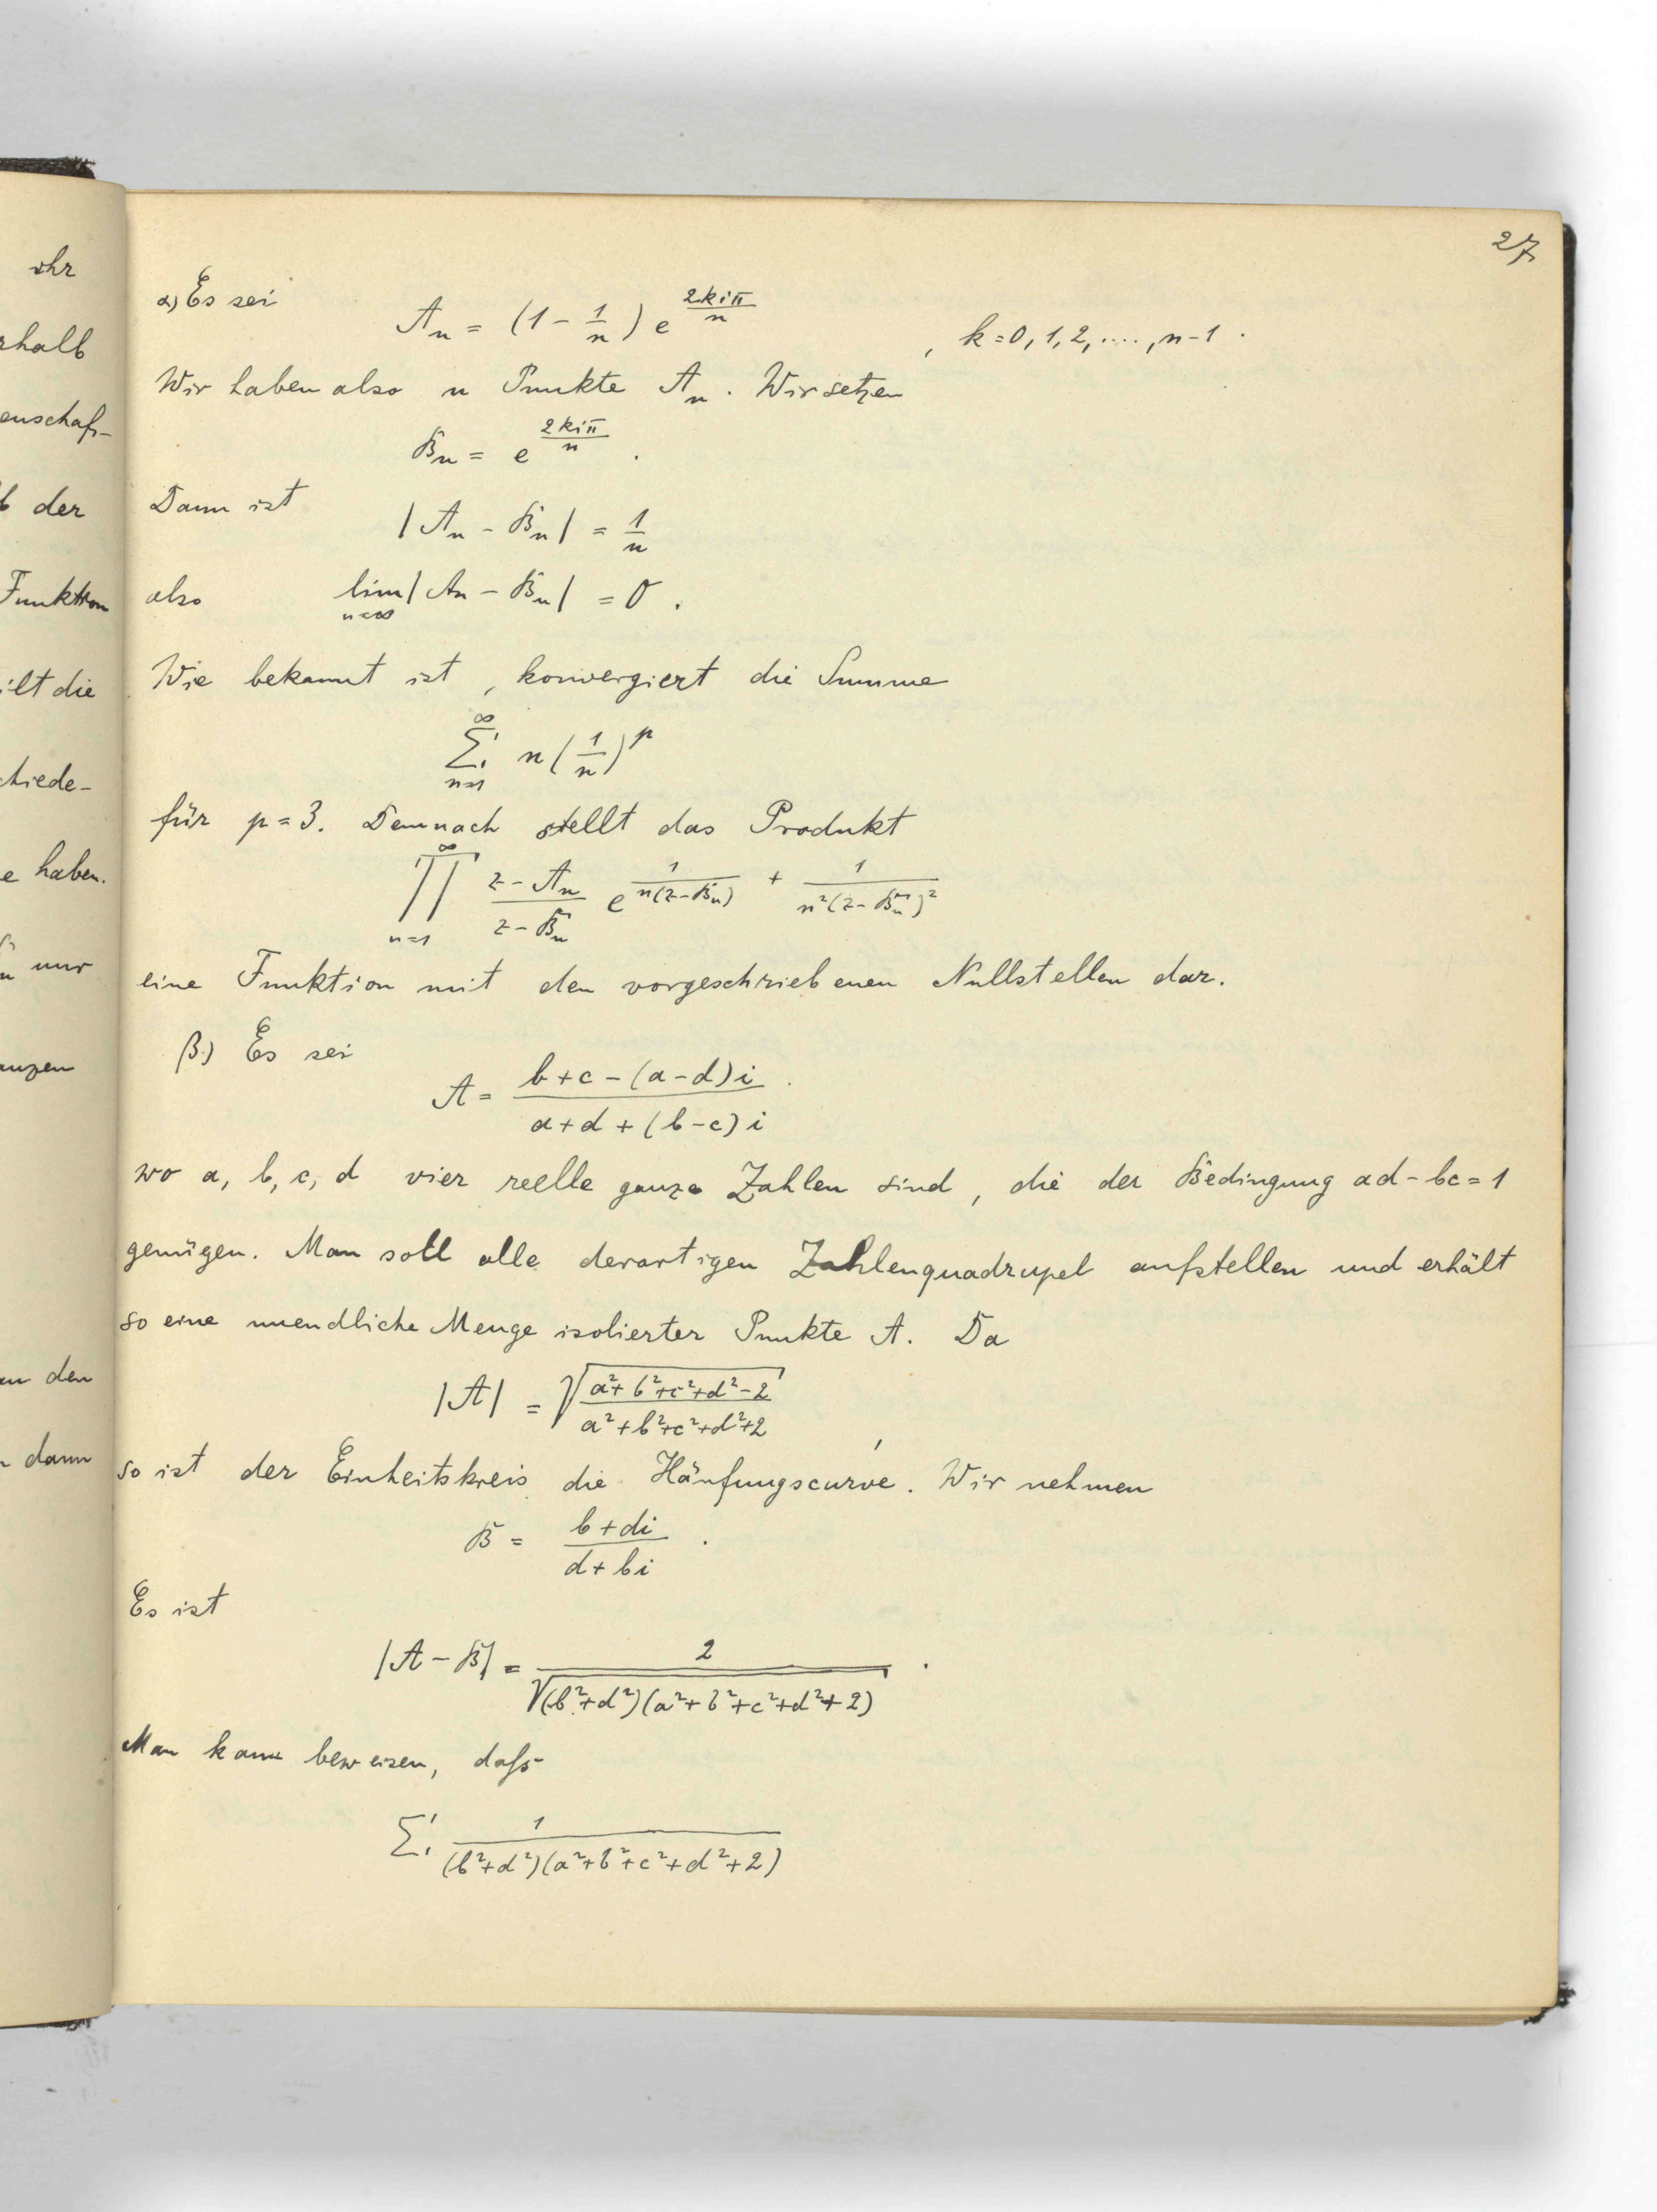 27
ihr
rhalb
enschaf-
b der
Funktion
ilt die
chiede-
e haben.
nur
anzen
an den
dann
α) Es sei
A_n = (1 - 1/n) e^{2kiπ/n} , k = 0, 1, 2, ...., n-1 .
Wir haben also n Punkte A_n. Wir setzen
B_n = e^{2kiπ/n} .
Dann ist
|A_n - B_n| = 1/n
also lim_{n=∞} |A_n - B_n| = 0 .
Wie bekannt ist, konvergiert die Summe
∑_{n=1}^{∞} n (1/n)^p
für p = 3. Demnach stellt das Produkt
∏_{n=1}^{∞} (z - A_n)/(z - B_n) e^{1/(n(z-B_n)) + 1/(n²(z-B_n)²)}
eine Funktion mit den vorgeschriebenen Nullstellen dar.
β) Es sei
A = (b+c-(a-d)i)/(a+d+(b-c)i) .
wo a, b, c, d vier reelle ganze Zahlen sind, die der Bedingung ad-bc=1
genügen. Man soll alle derartigen Zahlenquadrupel aufstellen und erhält
so eine unendliche Menge isolierter Punkte A. Da
|A| = √((a²+b²+c²+d²-2)/(a²+b²+c²+d²+2)) ,
so ist der Einheitskreis die Häufungscurve. Wir nehmen
B = (b+di)/(d+bi) .
Es ist
|A - B| = 2/√((b²+d²)(a²+b²+c²+d²+2)) .
Man kann beweisen, daß
∑ 1/((b²+d²)(a²+b²+c²+d²+2))